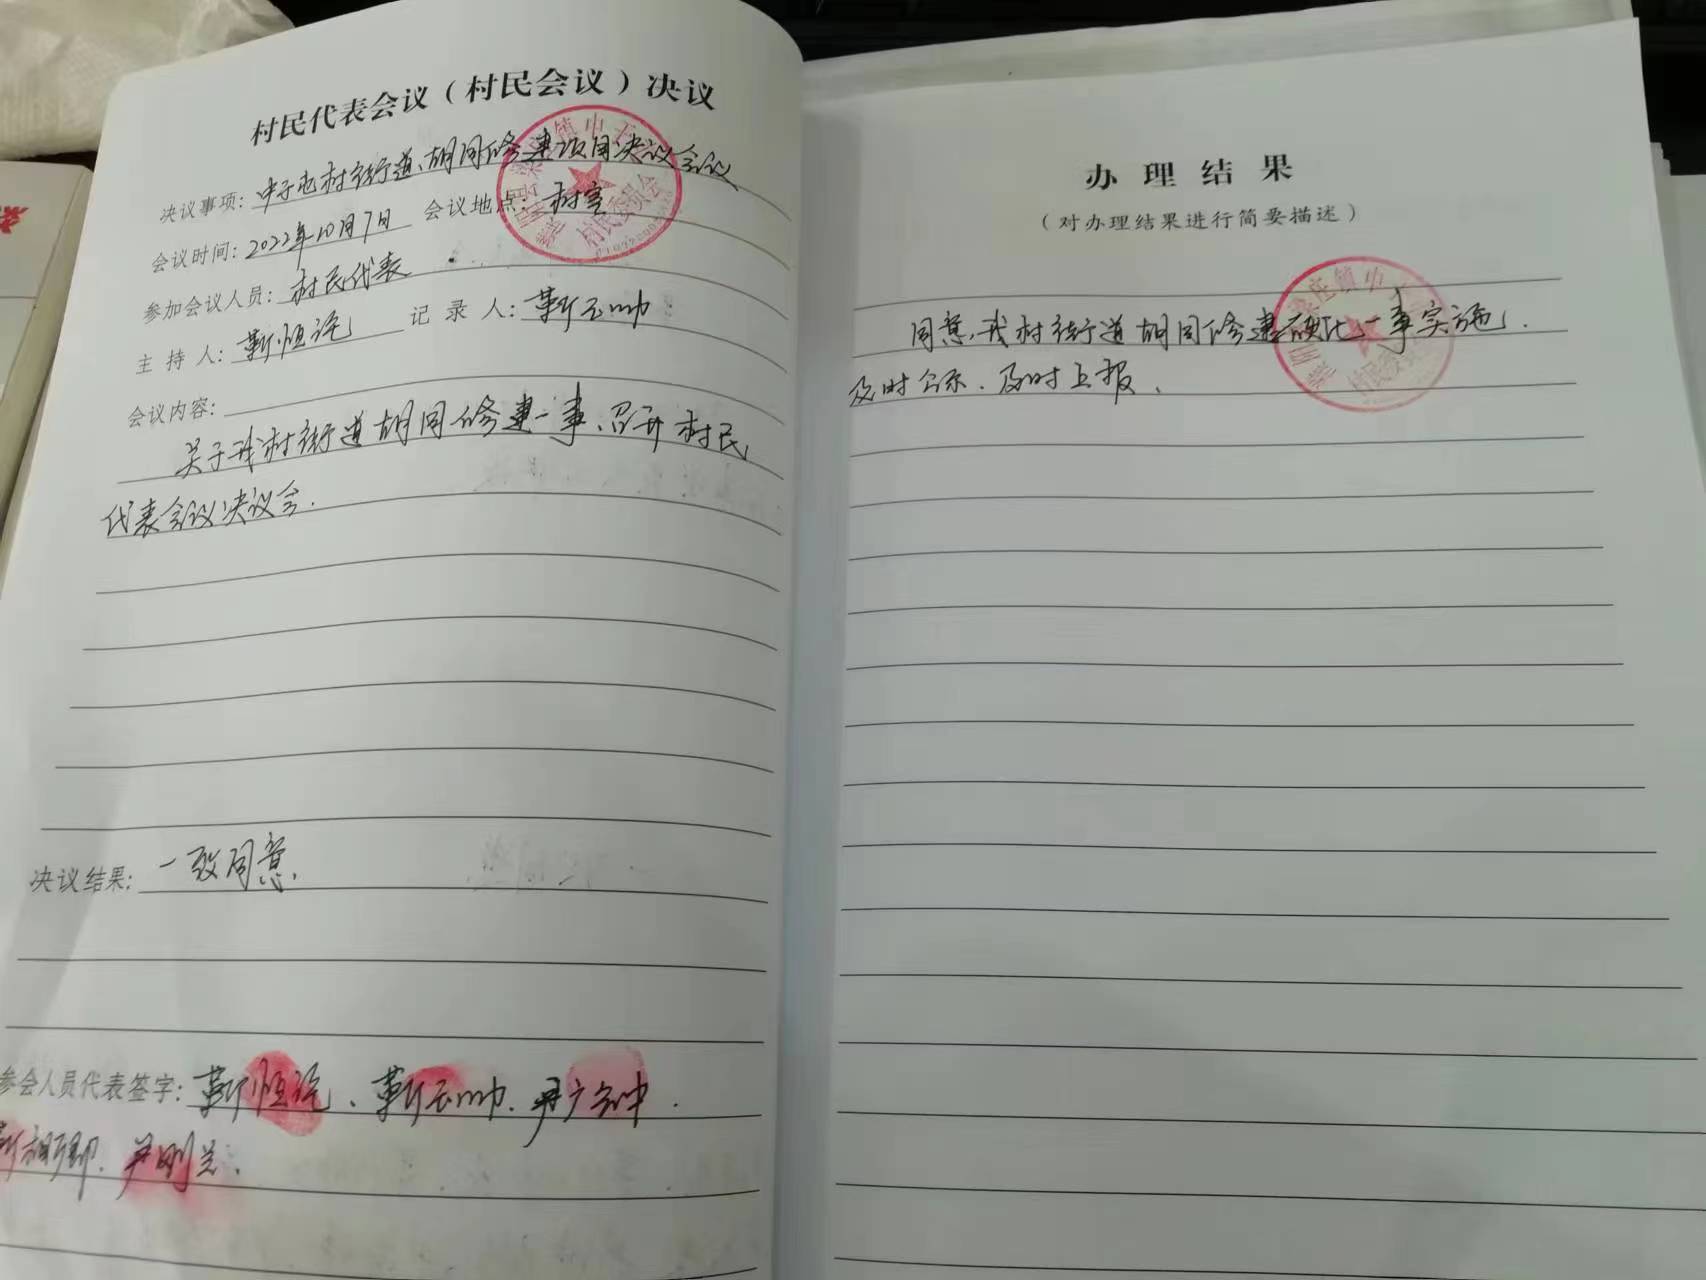 村民代表会议（村民会议）决议
决议事项：中子屯村街道、胡同修建项目决议会议
会议时间：2022年10月7日 会议地点：村室
参加会议人员：村民代表
主持人：靳恒 记录人：靳
会议内容：
关于我村街道胡同修建一事、召开村民
代表会议决议会.
决议结果：一致同意.
参会人员代表签字：靳恒 、靳
办理结果
（对办理结果进行简要描述）
同意,我村街道胡同修建硬化一事实施.
及时公示、及时上报.
庄镇中
村民委员会